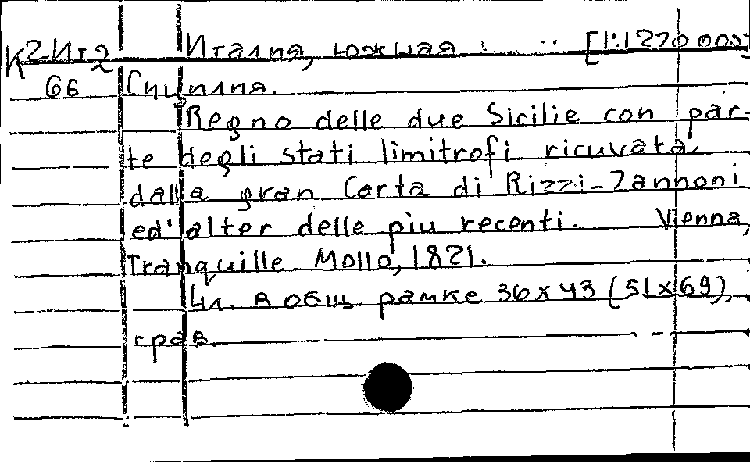 К 2-Ит2 Италия, южная. [1:1270 000]
66 Сицилия.
Regno delle due Sicilie con par-
te degli stati limitrofi ricuvata
dalla gran Carta di Rizzi-Zannoni
ed'alter delle piu recenti. Vienna,
Tranquille Mollo, 1821.
4л. в общ рамке 36х43 (51х69),
грав.